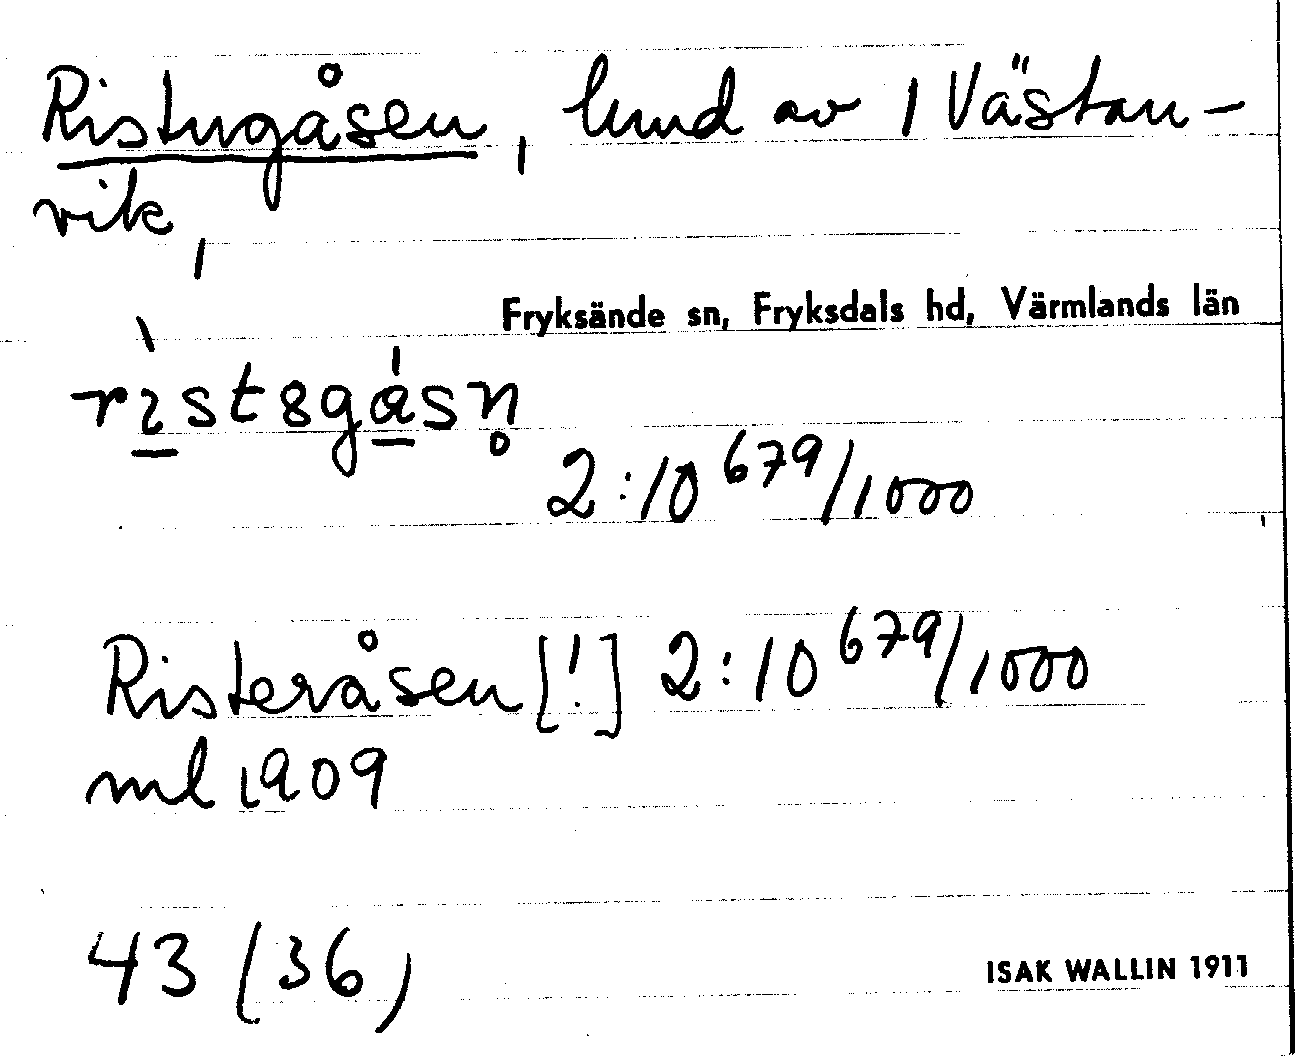 Ristugåsen, lund av 1 Västan-
vik,
Fryksände sn, Fryksdals hd, Värmlands län
rìstsgásn̥
2:10 679/1000
Risteråsen [!] 2:10 679/1000
ml 1909
43 (36)
ISAK WALLIN 1911